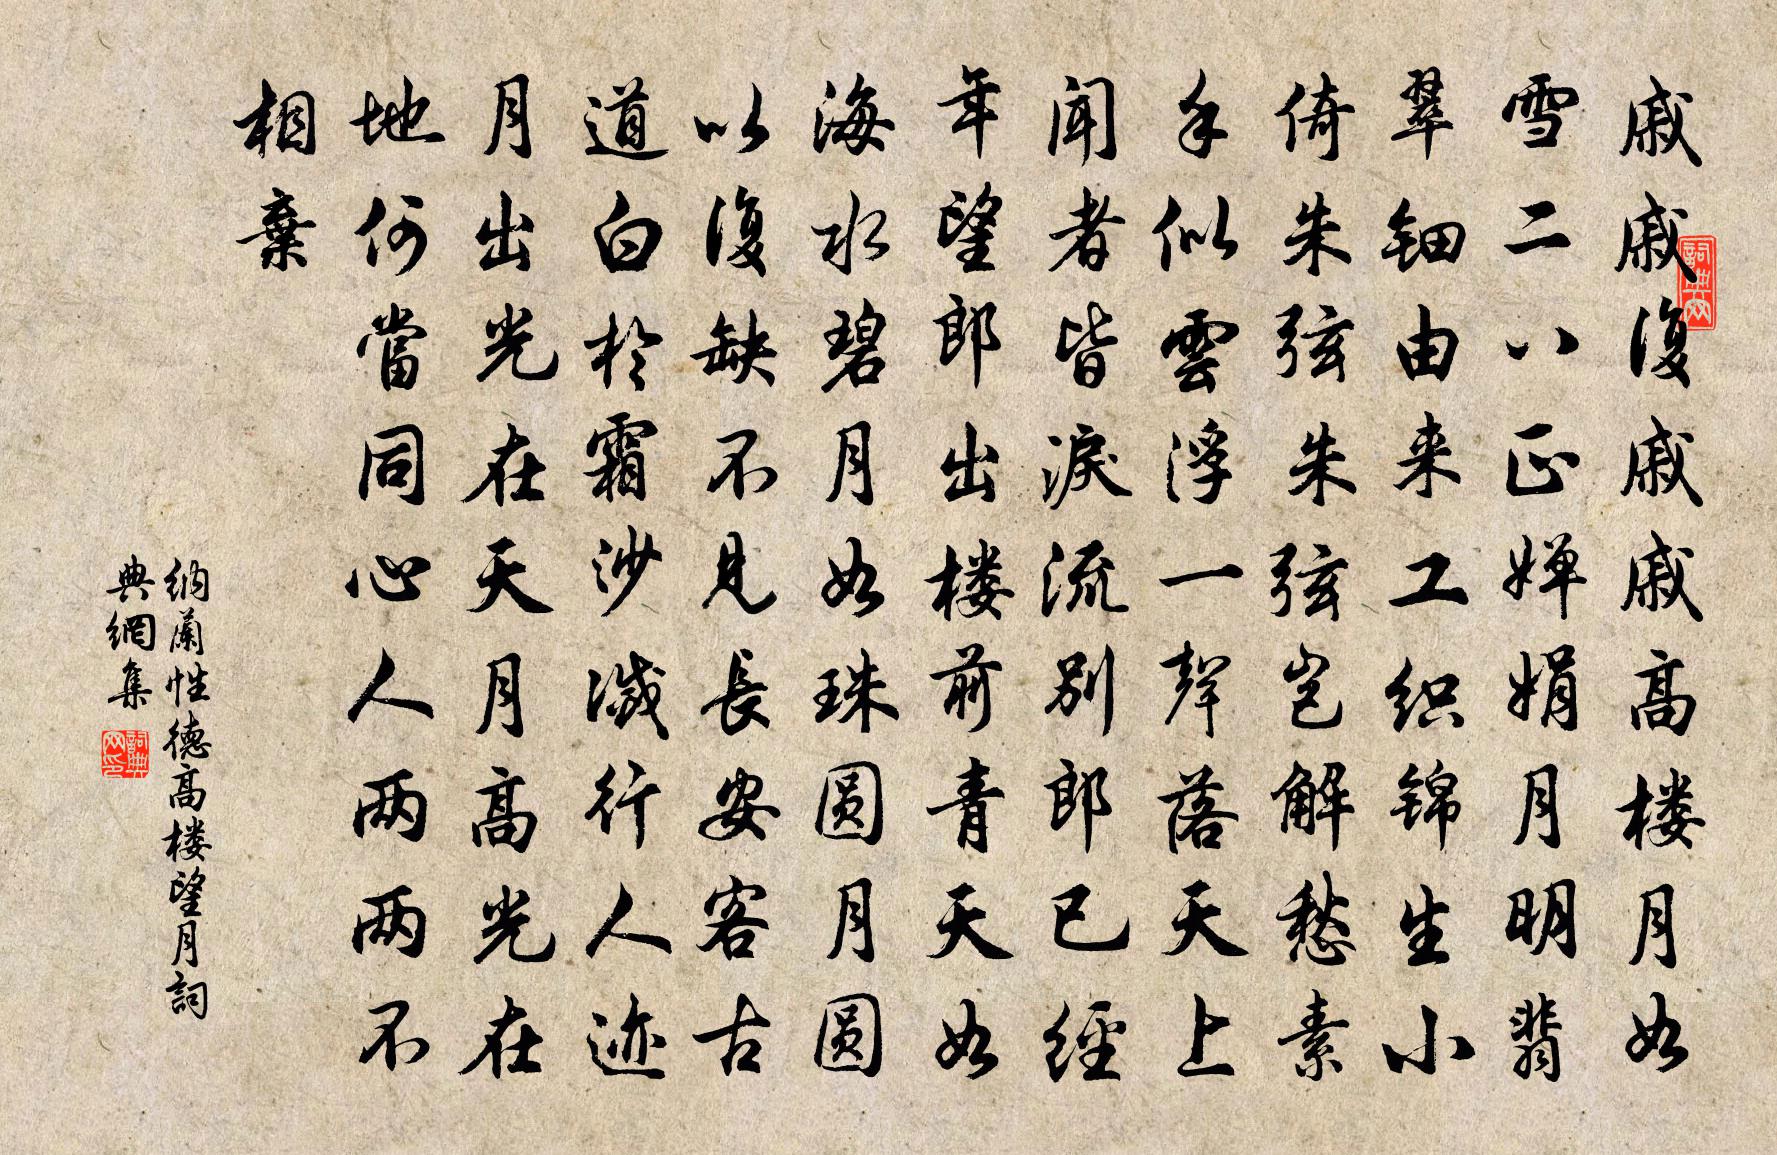 戚戚復戚戚高楼月如
雪二八正婵娟月明翡
翠钿由来工织锦生小
倚朱弦朱弦岂解愁素
手似雲浮一聲落天上
闻者皆淚流别郎已經
年望郎出楼前青天如
海水碧月如珠圆月圆
以復缺不見長安客古
道白於霜沙滅行人迹
月出光在天月高光在
地何當同心人两两不
相棄
納蘭性德高楼望月詞
典網集
詞典网
詞典网印